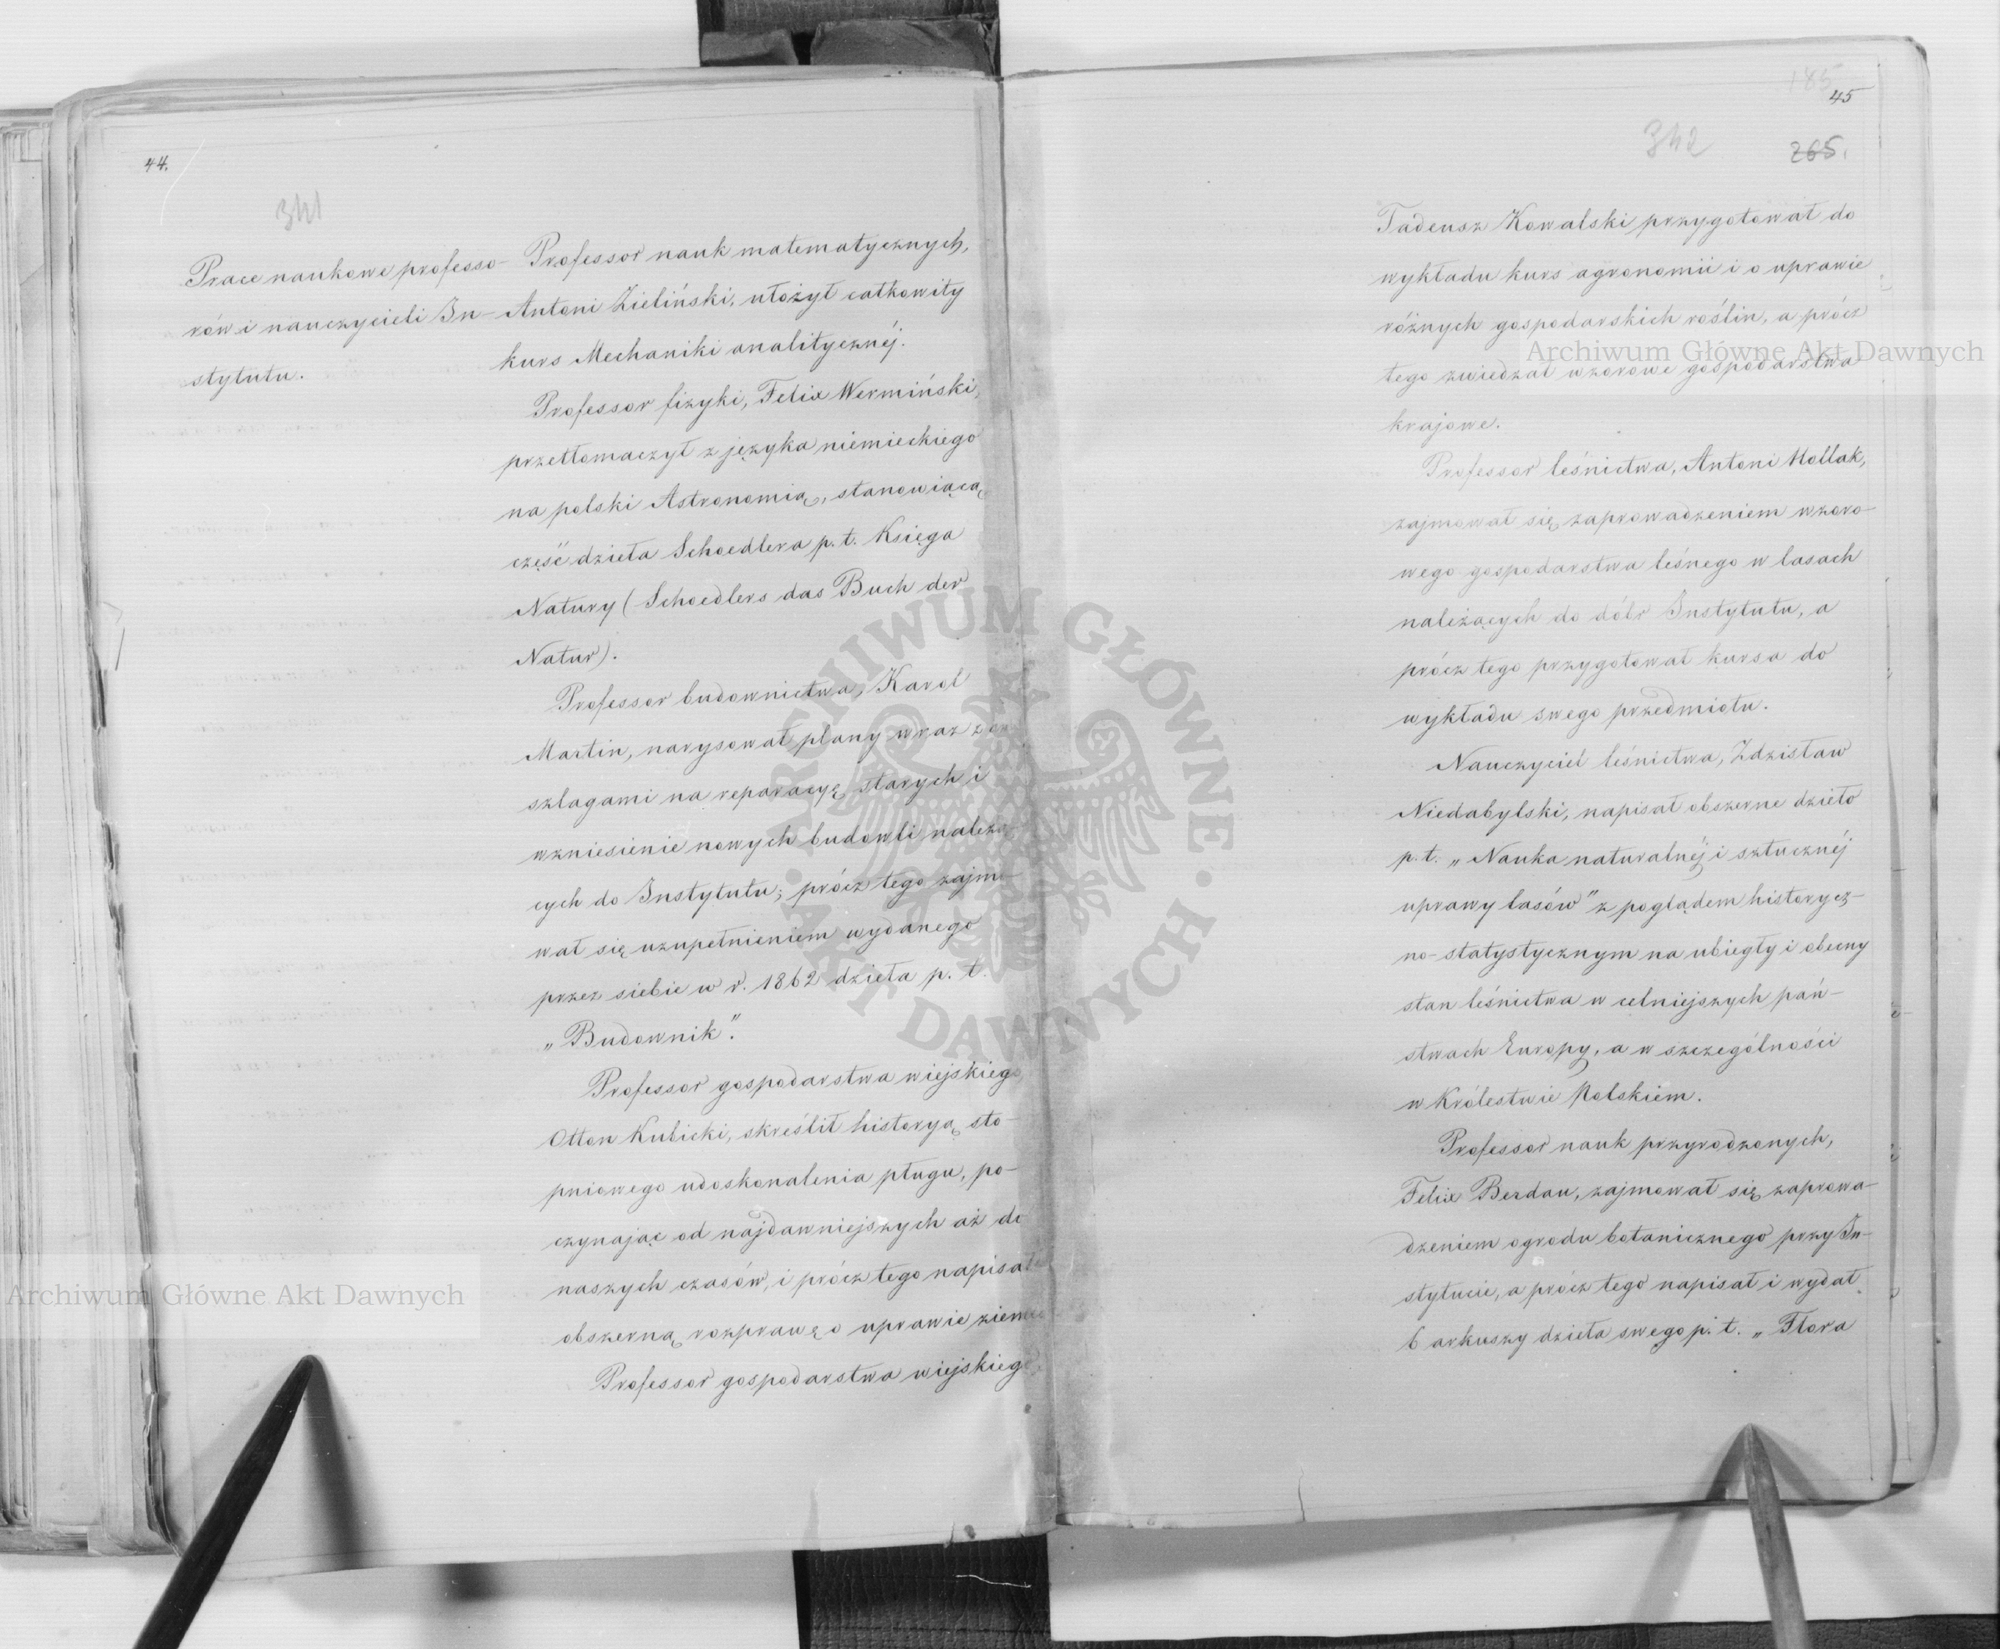 44.
341
Prace naukowe professo-
rów i nauczycieli In-
stytutu.
Professor nauk matematycznych,
Antoni Zieliński, ułożył całkowity
kurs Mechaniki analitycznéj.
Professor fizyki, Felix Wermiński,
przetłomaczył z języka niemieckiego
na polski Astronomią, stanowiącą
część dzieła Schoedlera p. t. Księga
Natury (Schoedlers das Buch der
Natur).
Professor budownictwa, Karol
Martin, narysował plany wraz z an-
szlagami na reparacyę starych i
wzniesienie nowych budowli należą-
cych do Instytutu; prócz tego zajmo-
wał się uzupełnieniem wydanego
przez siebie w r. 1862 dzieła p. t.
„Budownik".
Professor gospodarstwa wiejskiego
Otton Kubicki, skreślił historyą sto-
pniowego udoskonalenia pługu, po-
czynając od najdawniejszych aż do
naszych czasów, i prócz tego napisał
obszerną rozprawę o uprawie ziemi
Professor gospodarstwa wiejskiego
185
45
342
265.
Tadeusz Kowalski przygotował do
wykładu kurs agronomii i o uprawie
różnych gospodarskich roślin, a prócz
tego zwiedzał wzorowe gospodarstwa
krajowe.
Professor leśnictwa, Antoni Mollak,
zajmował się zaprowadzeniem wzoro-
wego gospodarstwa leśnego w lasach
należących do dóbr Instytutu, a
prócz tego przygotował kursa do
wykładu swego przedmiotu.
Nauczyciel leśnictwa, Zdzisław
Niedabylski, napisał obszerne dzieło
p. t. „Nauka naturalnéj i sztucznéj
uprawy lasów" z poglądem historycz-
no-statystycznym na ubiegły i obecny
stan leśnictwa w celniejszych pań-
stwach Europy, a w szczególności
w Królestwie Polskiem.
Professor nauk przyrodzonych,
Felix Berdau, zajmował się zaprowa-
dzeniem ogrodu botanicznego przy In-
stytucie, a prócz tego napisał i wydał
6 arkuszy dzieła swego p. t. „Flora
Archiwum Główne Akt Dawnych
Archiwum Główne Akt Dawnych
ARCHIWUM GŁÓWNE · AKT DAWNYCH ·